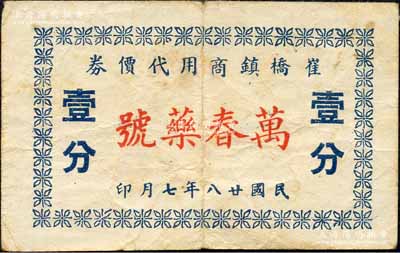 崔橋鎮商用代價券
壹分
萬春藥號
壹分
民國廿八年七月印